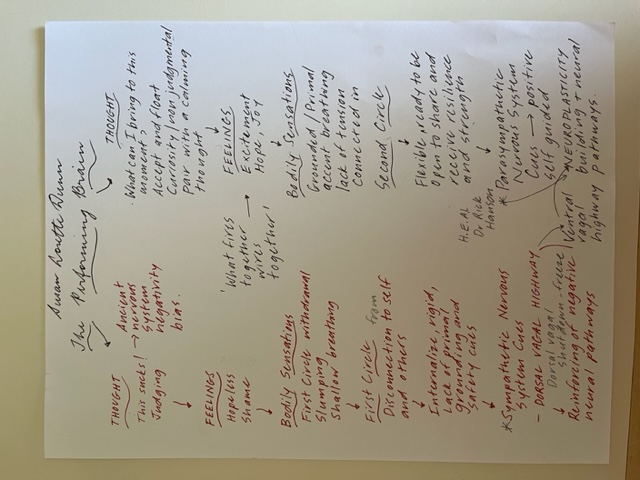 Susan Linette Dunn
The Performing Brain
THOUGHT
This sucks! → Ancient
nervous
System
negativity
bias.
Judging
FEELINGS
Hopeless
Shame
Bodily Sensations
First Circle withdrawal
Slumping
Shallow breathing
First Circle from
Disconnection to self
and others
Externalize rigid,
Lack of primal
grounding and
Safety cues
*Sympathetic Nervous
System Cues
- DORSAL VAGAL HIGHWAY
Dorsal vagal
Shutdown - freeze
Reinforcing of negative
neural pathways
'What fires
together →
wires
together'
THOUGHT
What can I bring to this
moment?
Accept and float
Curiosity/non judgmental
Pair with a calming
thought
FEELINGS
Excitement
Hope, Joy
Bodily Sensations
Grounded/Primal
accent breathing
lack of tension
Connected in
Second Circle
Flexible, ready to be
open to share and
receive resilience
and strength
H.E.AL
Dr Rick
Hanson
*Parasympathetic
Nervous System
Cues → positive
self guided
NEUROPLASTICITY
Ventral
vagal
highway
building + neural
pathways.